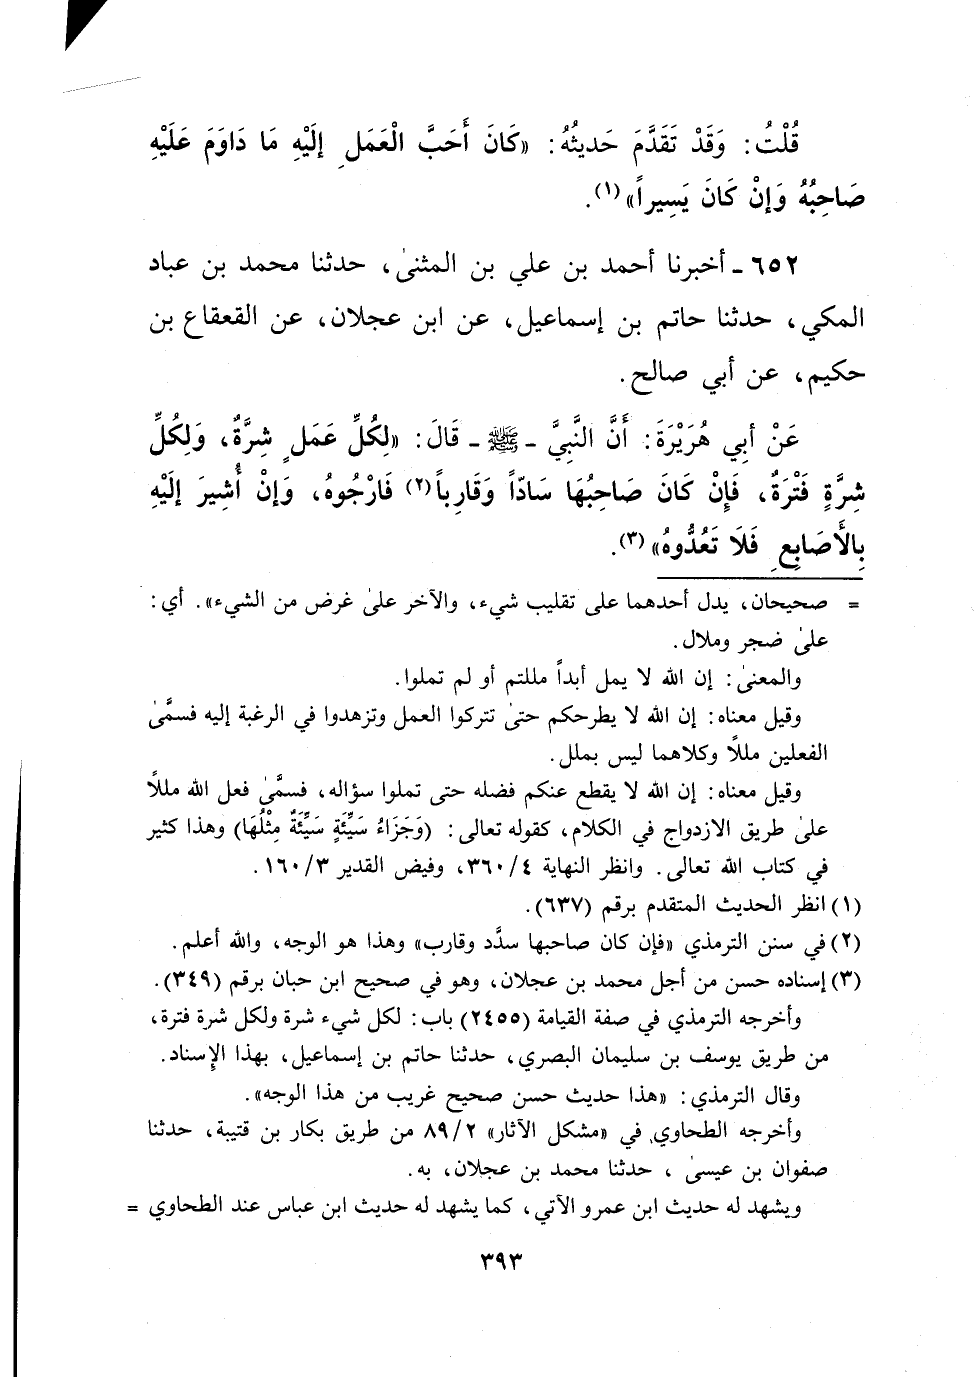 قُلْتُ: وَقَدْ تَقَدَّمَ حَديثُهُ: «كَانَ أَحَبَّ الْعَمَلِ إلَيْهِ مَا دَاوَمَ عَلَيْهِ
صَاحِبُهُ وَإنْ كَانَ يَسِيراً»(١).
٦٥٢ ـ أخبرنا أحمد بن علي بن المثنىٰ، حدثنا محمد بن عباد
المكي، حدثنا حاتم بن إسماعيل، عن ابن عجلان، عن القعقاع بن
حكيم، عن أبي صالح.
عَنْ أبي هُرَيْرَةَ: أَنَّ النَّبِيَّ ـ ﷺ ـ قَالَ: «لِكُلِّ عَمَلٍ شِرَّةٌ، وَلِكُلِّ
شِرَّةٍ فَتْرَةٌ، فَإِنْ كَانَ صَاحِبُهَا سَادّاً وَقَارِباً(٢) فَارْجُوهُ، وَإنْ أُشِيرَ إلَيْهِ
بِالأَصَابِعِ فَلَا تَعُدُّوهُ»(٣).
= صحيحان، يدل أحدهما على تقليب شيء، والآخر علىٰ غرض من الشيء». أي:
علىٰ ضجر وملال.
والمعنىٰ: إن الله لا يمل أبداً مللتم أو لم تملوا.
وقيل معناه: إن الله لا يطرحكم حتىٰ تتركوا العمل وتزهدوا في الرغبة إليه فسمَّىٰ
الفعلين مللاً وكلاهما ليس بملل.
وقيل معناه: إن الله لا يقطع عنكم فضله حتى تملوا سؤاله، فسمَّىٰ فعل الله مللاً
علىٰ طريق الازدواج في الكلام، كقوله تعالى: (وَجَزَاءُ سَيِّئَةٍ سَيِّئَةٌ مِثْلُهَا) وهذا كثير
في كتاب الله تعالى. وانظر النهاية ٣٦٠/٤، وفيض القدير ١٦٠/٣.
(١) انظر الحديث المتقدم برقم (٦٣٧).
(٢) في سنن الترمذي «فإن كان صاحبها سدَّد وقارب» وهذا هو الوجه، والله أعلم.
(٣) إسناده حسن من أجل محمد بن عجلان، وهو في صحيح ابن حبان برقم (٣٤٩).
وأخرجه الترمذي في صفة القيامة (٢٤٥٥) باب: لكل شيء شرة ولكل شرة فترة،
من طريق يوسف بن سليمان البصري، حدثنا حاتم بن إسماعيل، بهذا الإسناد.
وقال الترمذي: «هذا حديث حسن صحيح غريب من هذا الوجه».
وأخرجه الطحاوي في «مشكل الآثار» ٨٩/٢ من طريق بكار بن قتيبة، حدثنا
صفوان بن عيسىٰ، حدثنا محمد بن عجلان، به.
ويشهد له حديث ابن عمرو الآتي، كما يشهد له حديث ابن عباس عند الطحاوي =
٣٩٣